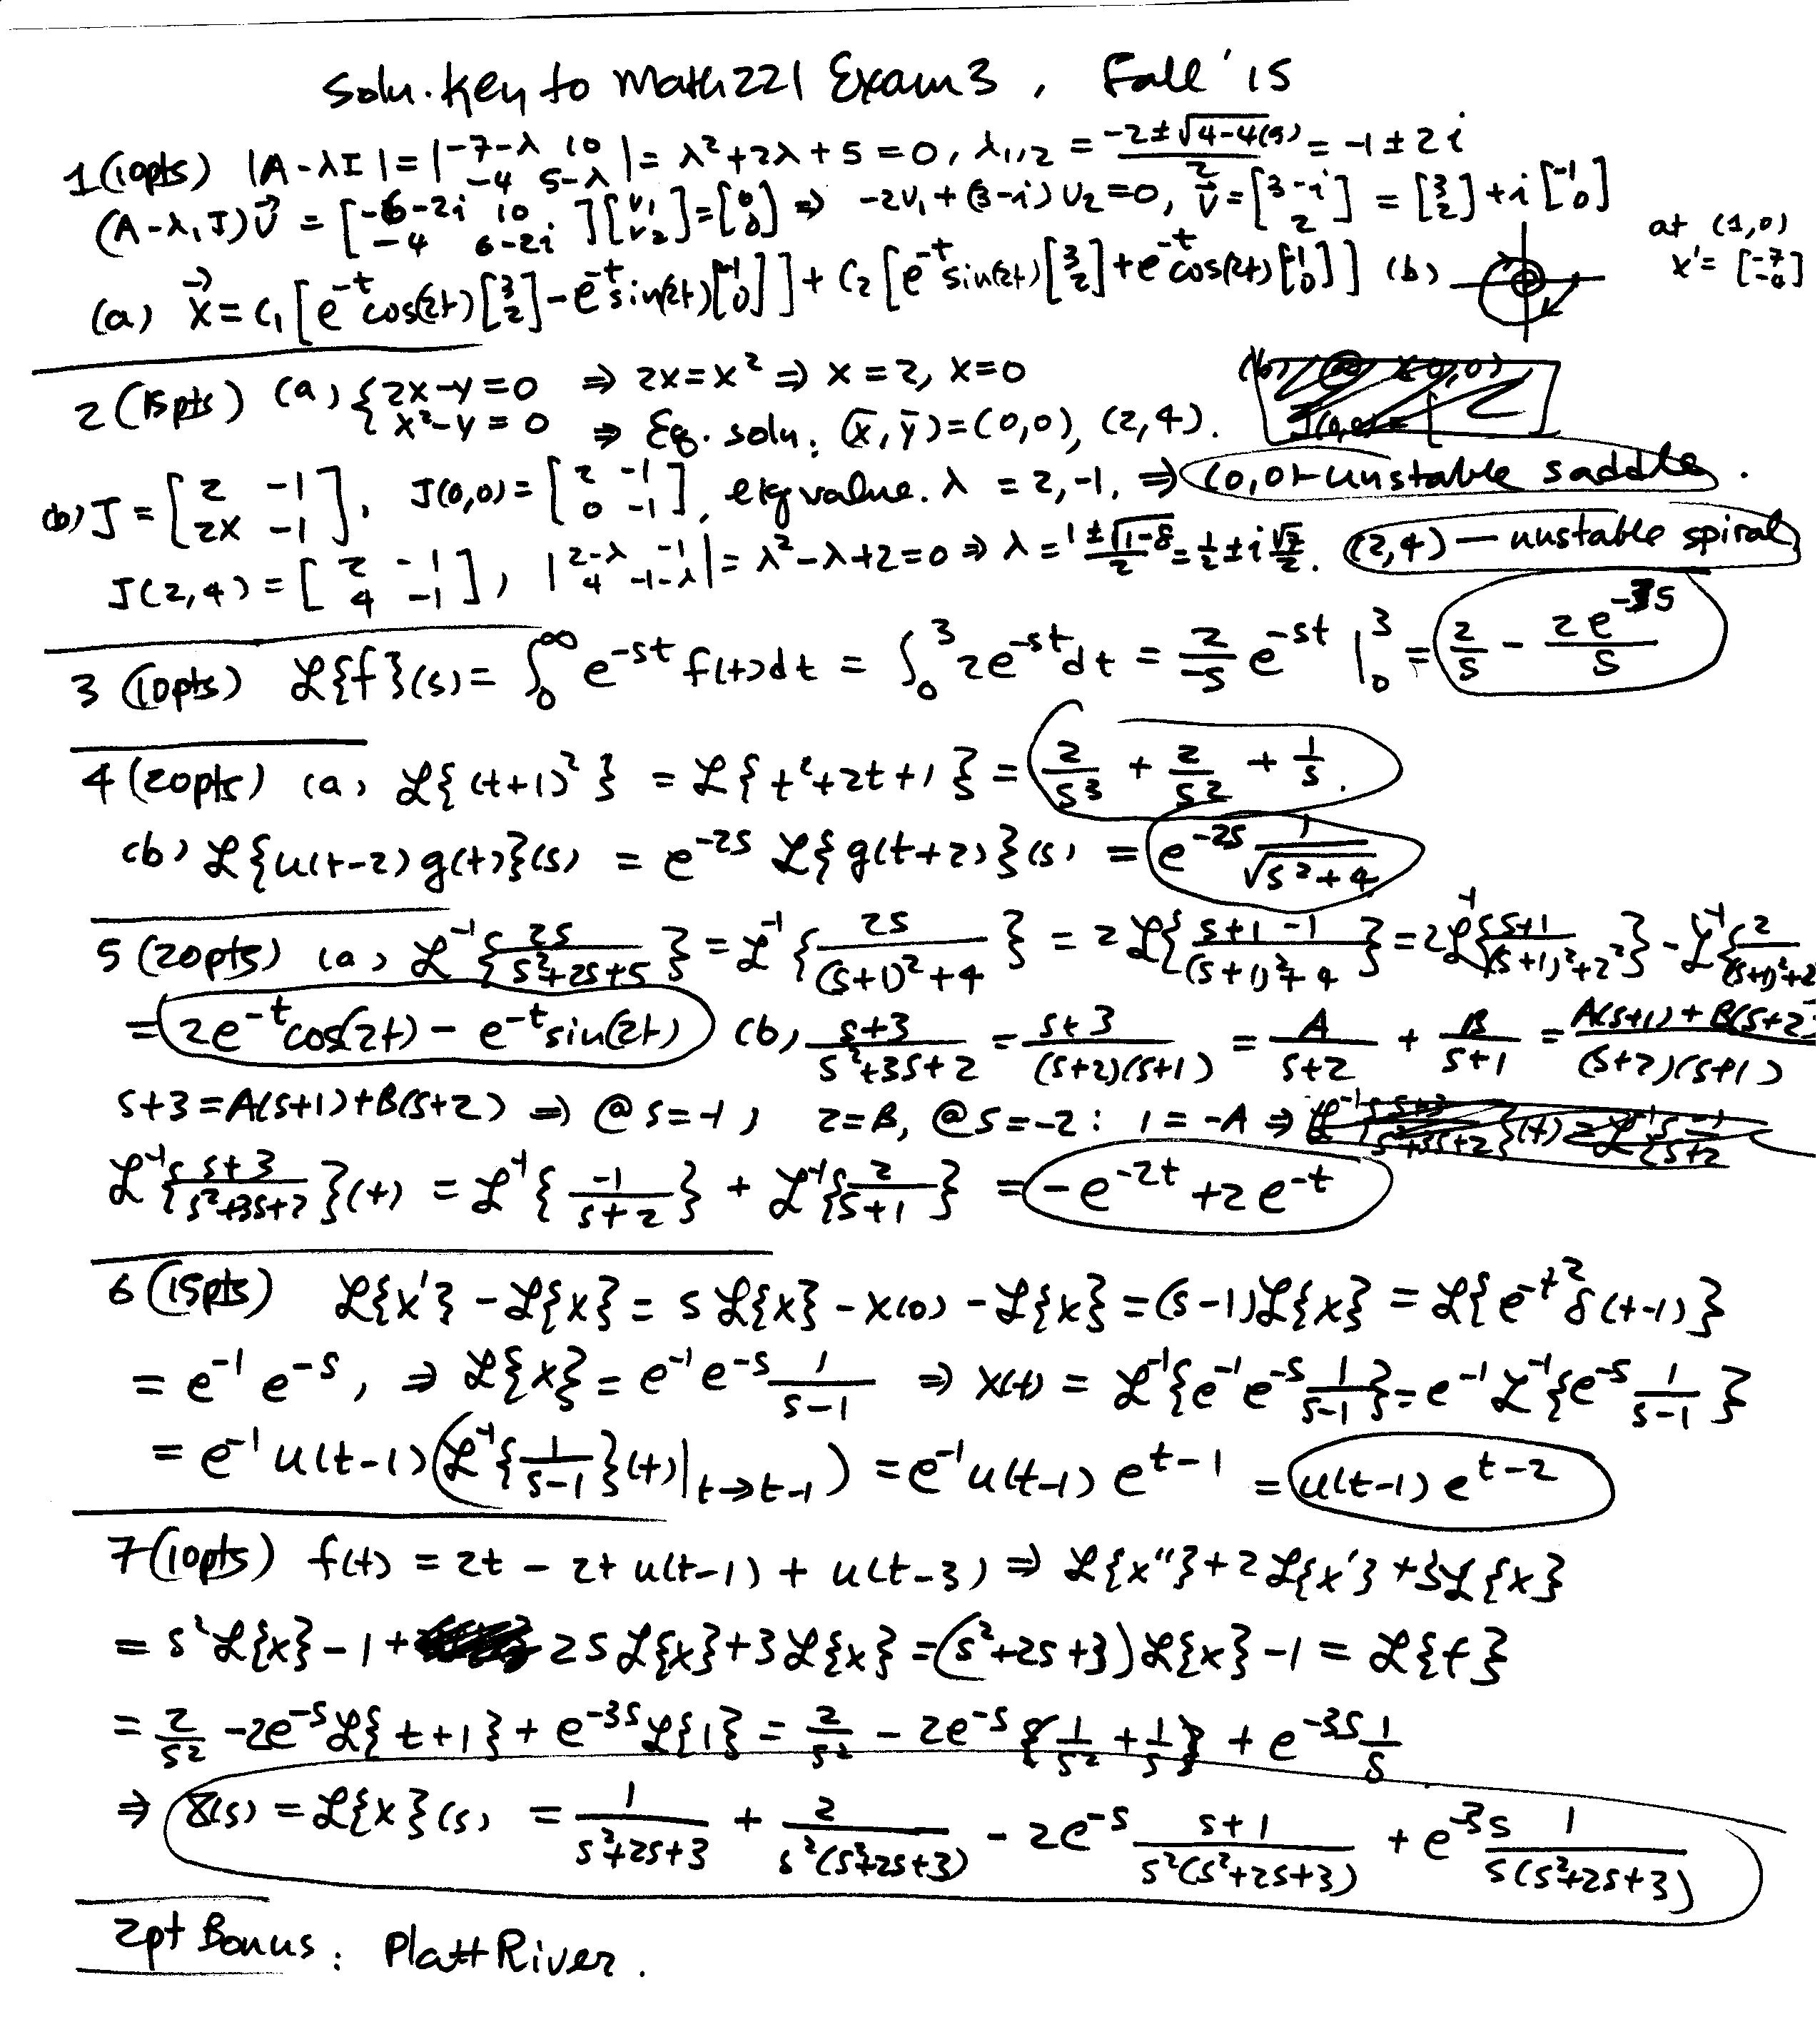 Soln. Key to Math 221 Exam 3, Fall '15
1 (10pts) |A-λI| = |-7-λ 10; -4 5-λ| = λ²+2λ+5 = 0, λ₁,₂ = (-2±√(4-4(5)))/2 = -1±2i
(A-λ₁I)v⃗ = [-6-2i 10; -4 6-2i][v₁; v₂] = [0; 0] ⇒ -2v₁+(3-i)v₂=0, v⃗ = [3-i; 2] = [3; 2]+i[-1; 0]
at (1,0)
x' = [-7; -4]
(a) x⃗ = c₁[e^{-t}cos(2t)[3; 2] - e^{-t}sin(2t)[-1; 0]] + c₂[e^{-t}sin(2t)[3; 2] + e^{-t}cos(2t)[-1; 0]] (b)
2 (15pts) (a) { 2x-y=0 ⇒ 2x=x² ⇒ x=2, x=0
x²-y=0 ⇒ Eq. soln: (x̄,ȳ)=(0,0), (2,4).
(b) J = [2 -1; 2x -1], J(0,0) = [2 -1; 0 -1], eigvalue. λ = 2,-1, ⇒ (0,0)-unstable saddle.
J(2,4) = [2 -1; 4 -1], |2-λ -1; 4 -1-λ| = λ²-λ+2=0 ⇒ λ = (1±√(1-8))/2 = 1/2 ± i √7/2. (2,4) — unstable spiral
3 (10pts) ℒ{f}(s) = ∫₀^∞ e^{-st} f(t)dt = ∫₀³ 2e^{-st}dt = 2/(-s) e^{-st} |₀³ = 2/s - 2e^{-3s}/s
4 (20pts) (a) ℒ{(t+1)²} = ℒ{t²+2t+1} = 2/s³ + 2/s² + 1/s.
(b) ℒ{u(t-2)g(t)}(s) = e^{-2s} ℒ{g(t+2)}(s) = e^{-2s} 1/√(s²+4)
5 (20pts) (a) ℒ⁻¹{2s/(s²+2s+5)} = ℒ⁻¹{2s/((s+1)²+4)} = 2ℒ{(s+1-1)/((s+1)²+4)} = 2ℒ⁻¹{(s+1)/((s+1)²+2²)} - ℒ⁻¹{2/((s+1)²+2
= 2e^{-t}cos(2t) - e^{-t}sin(2t) (b) (s+3)/(s²+3s+2) = (s+3)/((s+2)(s+1)) = A/(s+2) + B/(s+1) = (A(s+1)+B(s+2)/((s+2)(s+1))
s+3 = A(s+1)+B(s+2) ⇒ @s=-1, 2=B, @s=-2: 1=-A ⇒
ℒ⁻¹{(s+3)/(s²+3s+2)}(t) = ℒ⁻¹{-1/(s+2)} + ℒ⁻¹{2/(s+1)} = -e^{-2t}+2e^{-t}
6 (15pts) ℒ{x'}-ℒ{x} = sℒ{x}-x(0)-ℒ{x} = (s-1)ℒ{x} = ℒ{e^{-t²}δ(t-1)}
= e^{-1}e^{-s}, ⇒ ℒ{x} = e^{-1}e^{-s} 1/(s-1) ⇒ x(t) = ℒ⁻¹{e^{-1}e^{-s} 1/(s-1)} = e^{-1}ℒ⁻¹{e^{-s} 1/(s-1)}
= e^{-1}u(t-1)(ℒ⁻¹{1/(s-1)}(t)|_{t→t-1}) = e^{-1}u(t-1)e^{t-1} = u(t-1)e^{t-2}
7 (10pts) f(t) = 2t - 2t u(t-1) + u(t-3) ⇒ ℒ{x''}+2ℒ{x'}+3ℒ{x}
= s²ℒ{x}-1+ 2sℒ{x}+3ℒ{x} = (s²+2s+3)ℒ{x}-1 = ℒ{f}
= 2/s² - 2e^{-s}ℒ{t+1} + e^{-3s}ℒ{1} = 2/s² - 2e^{-s}{1/s²+1/s} + e^{-3s} 1/s
⇒ X(s) = ℒ{x}(s) = 1/(s²+2s+3) + 2/(s²(s²+2s+3)) - 2e^{-s} (s+1)/(s²(s²+2s+3)) + e^{-3s} 1/(s(s²+2s+3))
2pt Bonus: Platt River.